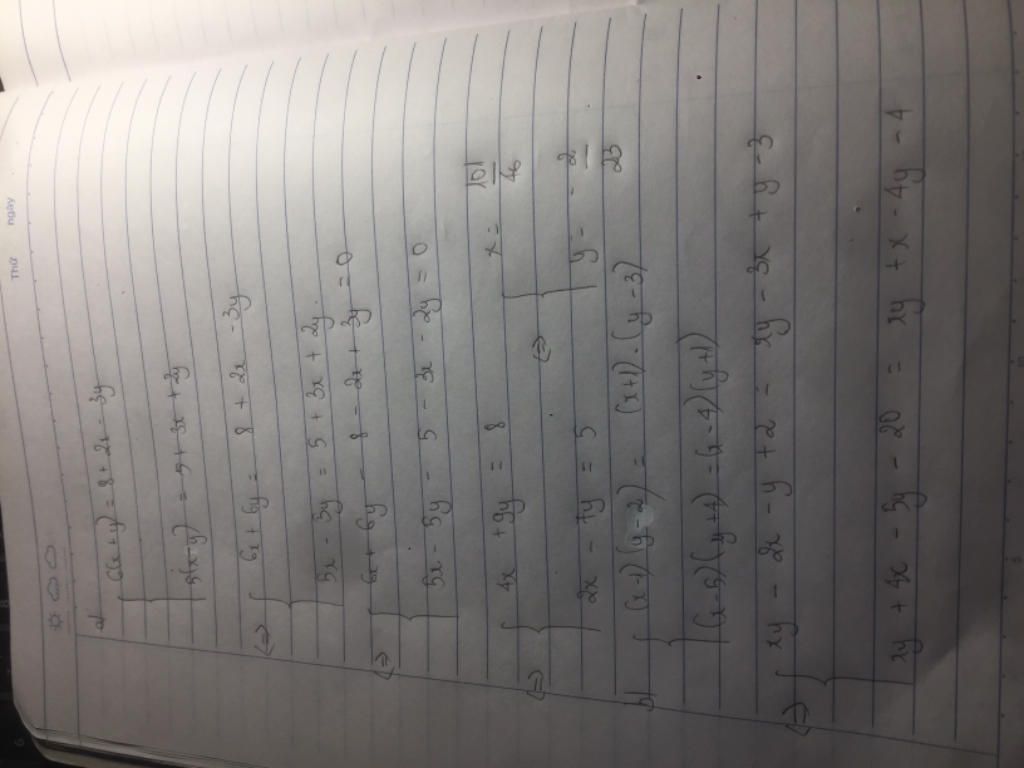 Thứ
ngày
a/ { 6(x+y) = 8 + 2x - 3y
5(x-y) = 5 + 3x + 2y
<=> { 6x + 6y = 8 + 2x - 3y
5x - 5y = 5 + 3x + 2y
<=> { 6x + 6y - 8 - 2x + 3y = 0
5x - 5y - 5 - 3x - 2y = 0
<=> { 4x + 9y = 8 <=> { x = 101/46
2x - 7y = 5 y = - 2/23
b/ { (x-1)(y-2) = (x+1).(y-3)
(x-5)(y+4) = (x-4)(y+1)
<=> { xy - 2x - y + 2 = xy - 3x + y - 3
xy + 4x - 5y - 20 = xy + x - 4y - 4